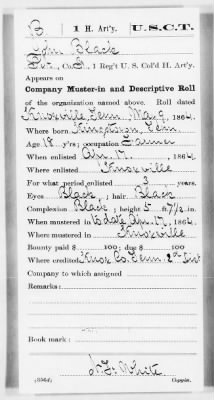 B | 1 H. Art'y. | U.S.C.T.
John Black
Pvt., Co. , 1 Reg't U. S. Col'd H. Art'y.
Appears on
Company Muster-in and Descriptive Roll
of the organization named above. Roll dated
Knoxville, Tenn, May 9, 1864.
Where born Kingston, Tenn
Age 18 y'rs; occupation Farmer
When enlisted Apr. 17, 1864.
Where enlisted Knoxville
For what period enlisted 3 years.
Eyes Black; hair Black
Complexion Black; height 5 ft. 7½ in.
When mustered in to date Apr. 17, 1864.
Where mustered in Knoxville
Bounty paid $ 100; due $ 100
Where credited Knox Co. Tenn. 2nd Dist
Company to which assigned
Remarks:
Book mark:
White
(356d) Copyist.